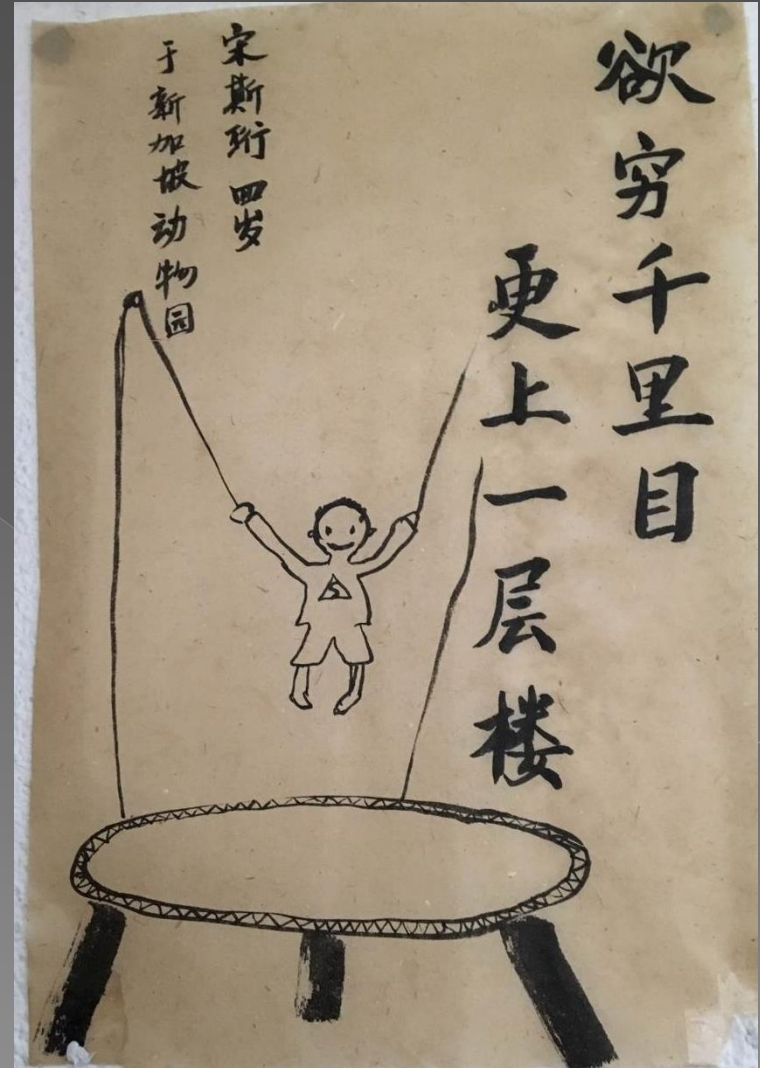 欲穷千里目
更上一层楼
宋斯珩 四岁
于新加坡动物园
S